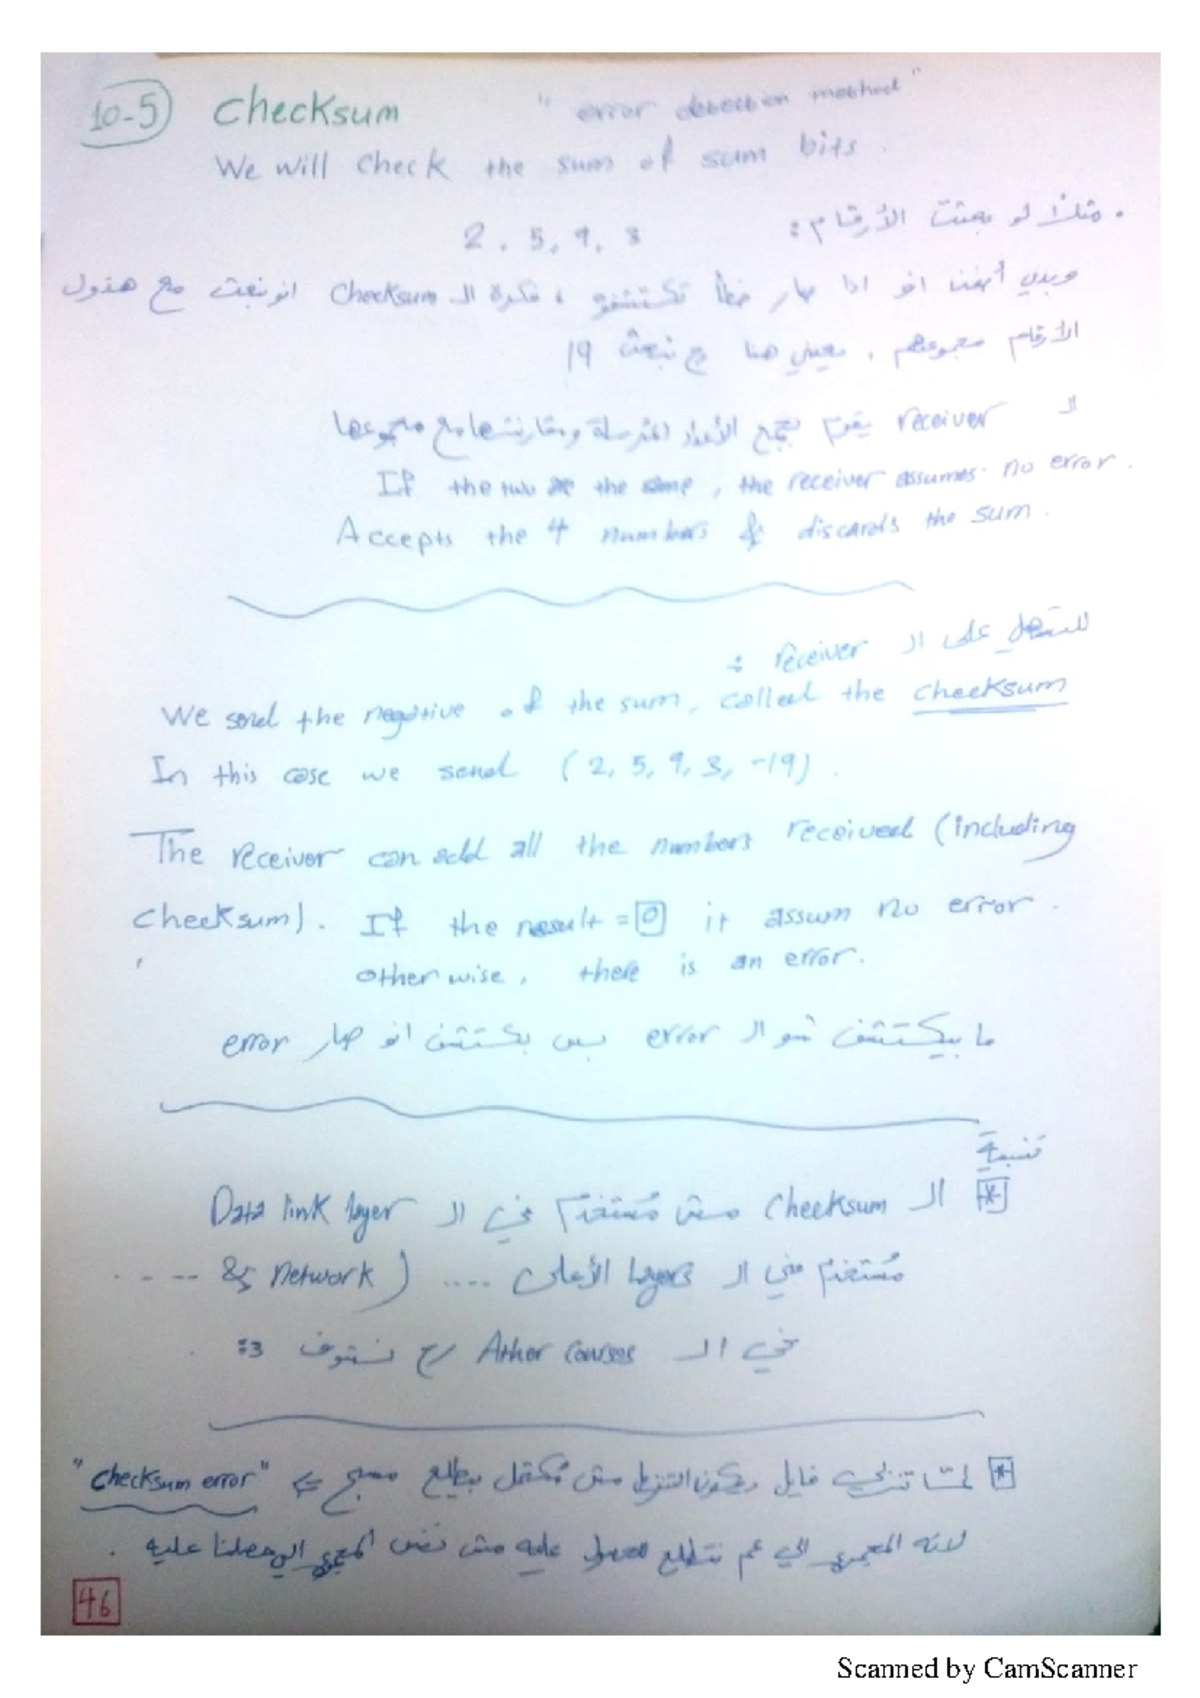 10-5 Checksum "error detection method"
We will check the sum of sum bits.
. مثلاً لو بعثت الأرقام : 2, 5, 9, 3
وبدي أعرف انو اذا صار خطأ تكتشفو ، فكرة الـ checksum انو نبعث مع هدول
الأرقام مجموعهم ، يعني هنا رح نبعث 19
الـ receiver يقوم بجمع الأعداد المرسلة ومقارنتها مع مجموعها
If the two are the same, the receiver assumes no error.
Accepts the 4 numbers & discards the sum.
للتسهيل على الـ receiver :
We send the negative of the sum, called the checksum
In this case we send (2, 5, 9, 3, -19).
The receiver can add all the numbers received (including
checksum). If the result = 0 it assum no error.
otherwise, there is an error.
ما بيكتشف شو الـ error بس بكتشف انو صار error
تنبيه
* الـ checksum مش مُستخدم في الـ Data link layer
مُستخدم في الـ layers الأعلى .... ( network & ....
في الـ Other courses رح نستوفي :3
* لمّا تنزلي فايل ويكون التنزيل مش مُكتمل بيطلع مسج <= "checksum error"
لانه المجموع الي عم نتطلع للحصول عليه مش نفس المجموع الي حصلنا عليه .
46
Scanned by CamScanner